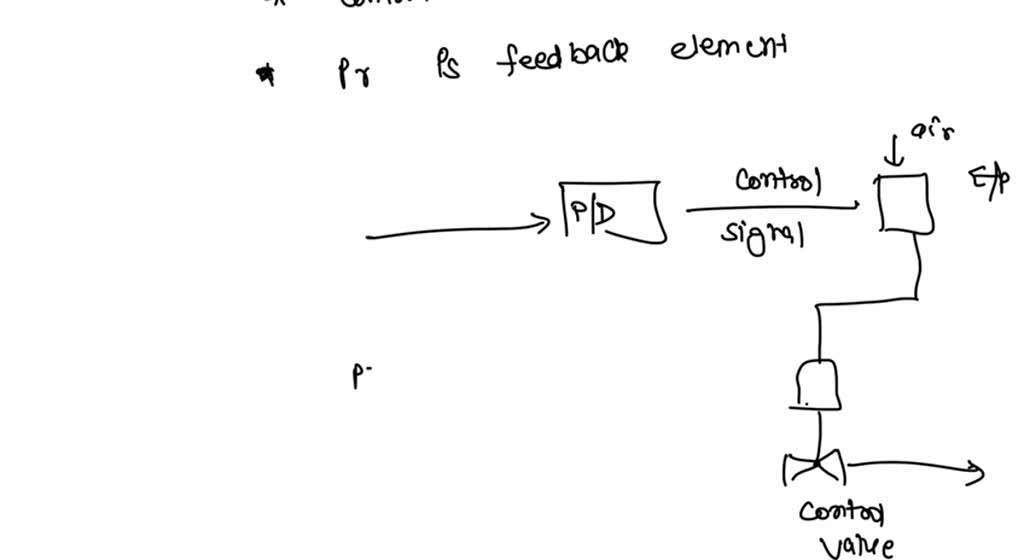 * Pr Ps feedback element
air
E/P
P/D
Control
Signal
P
Control
Valve